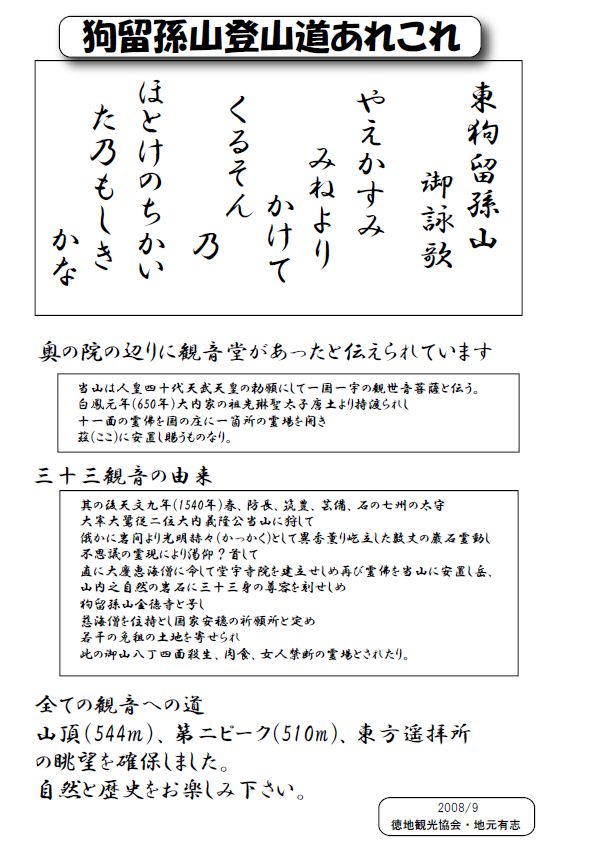 狗留孫山登山道あれこれ
東狗留孫山
御詠歌
やえかすみ
みねより
かけて
くるそん
乃
ほとけのちかい
た乃もしき
かな
奥の院の辺りに観音堂があったと伝えられています
当山は人皇四十代天武天皇の勅願にして一国一宇の観世音菩薩と伝う。
白鳳元年(650年)大内家の祖光琳聖太子唐土より持渡られし
十一面の霊佛を国の庄に一箇所の霊場を開き
茲(ここ)に安置し賜うものなり。
三十三観音の由来
其の後天文九年(1540年)春、防長、筑豊、芸備、石の七州の太守
大宰大鷲従二位大内義隆公当山に狩して
俄かに岩間より光明赫々(かっかく)として異香薫り屹立した数丈の巌石霊動し
不思議の霊現により渇仰？首して
直に大慶恵海僧に令して堂宇寺院を建立せしめ再び霊佛を当山に安置し岳、
山内之自然の岩石に三十三身の尊容を刻せしめ
狗留孫山金徳寺と号し
慈海僧を住持とし国家安穏の祈願所と定め
若干の免租の土地を寄せられ
此の御山八丁四面殺生、肉食、女人禁断の霊場とされたり。
全ての観音への道
山頂(544m)、第二ピーク(510m)、東方遥拝所
の眺望を確保しました。
自然と歴史をお楽しみ下さい。
2008/9
徳地観光協会・地元有志